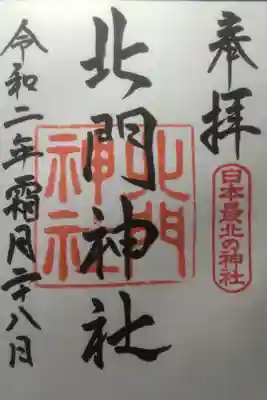 奉拝
日本最北の神社
北門神社
北門神社
令和二年霜月二十八日